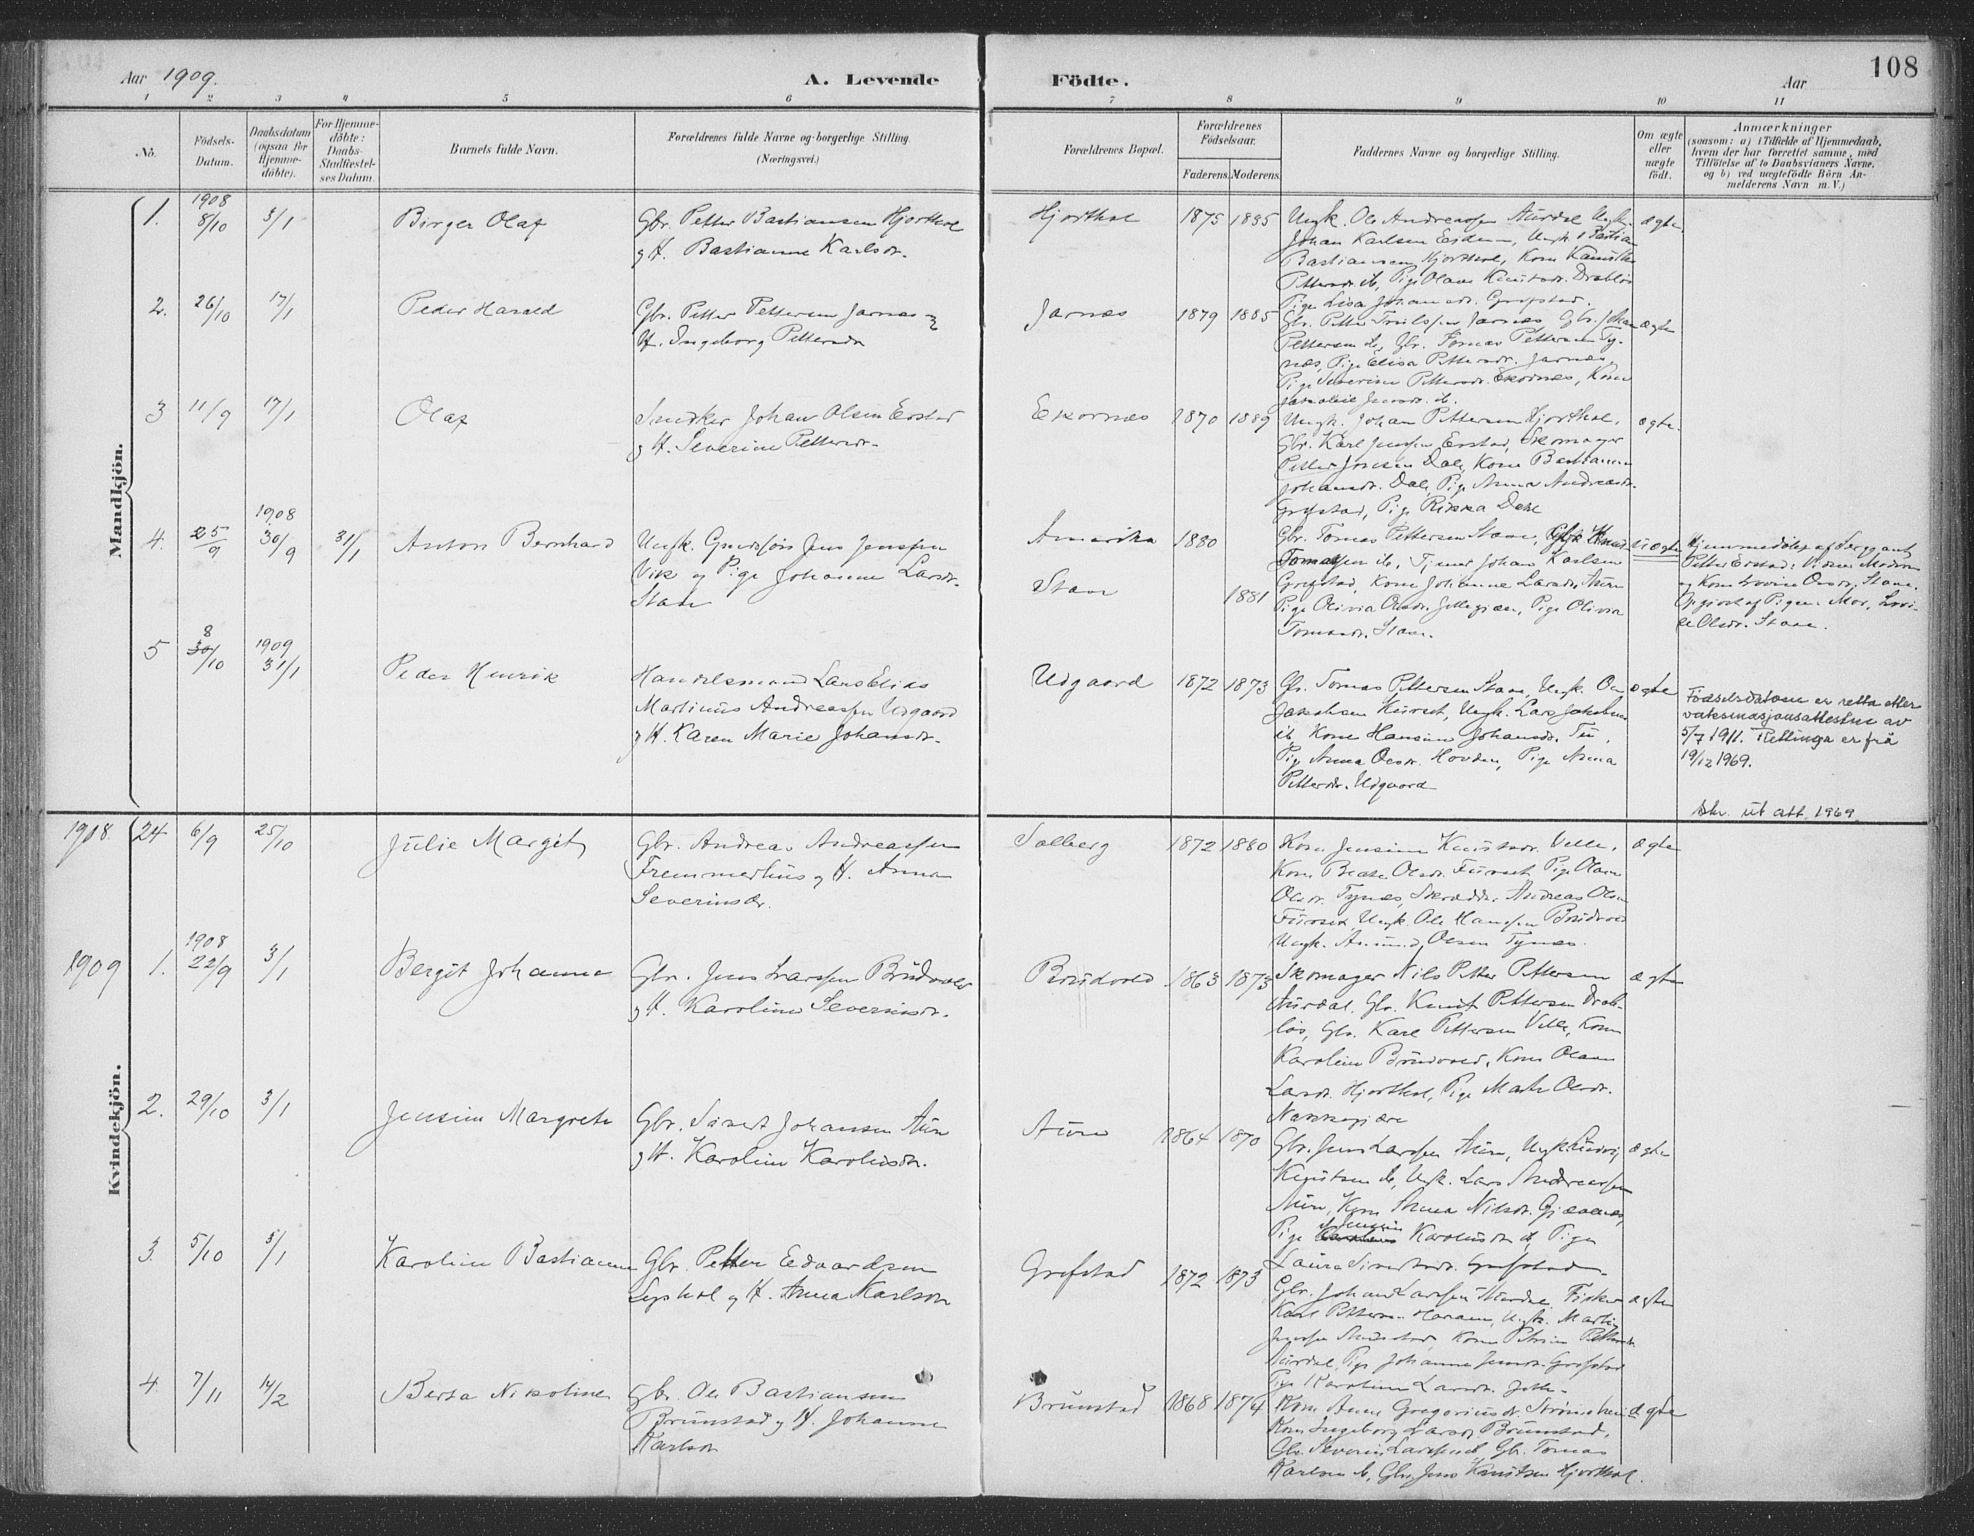 108
Aar 1909.
A. Levende
Födte.
Aar
1 2 3 4 5 6 7 8 9 10 11
No.
Födsels-
Datum.
Daabsdatum
(ogsaa for
Hjemme-
döbte).
For Hjemme-
döbte:
Daabs-
Stadfæstel-
ses Datum.
Barnets fulde Navn.
Forældrenes fulde Navne og borgerlige Stilling.
(Næringsvei.)
Forældrenes Bopæl.
Forældrenes
Födselsaar.
Faderens. Moderens.
Faddernes Navne og borgerlige Stilling.
Om ægte
eller
uægte
födt.
Anmærkninger
(saasom: a) i Tilfælde af Hjemmedaab,
hvem der har forrettet samme, med
Tilföielse af to Daabsvidners Navne,
og b) ved uægtefödte Börn An-
melderens Navn m. V.)
Mandkjön.
1908
1. 8/10 3/1
Birger Olaf
Gbr. Petter Bastiansen Hjorthol
og H. Bastianne Karlsdr.
Hjorthol
1875 1885
Ungk. Ole Andreassen Aurdal Ungk.
Johan Karlsen Eidem, Ungk Bastian
Bastiansen Hjorthol, Kone
Pettersdr ib, Pige Olave Knutsdr. Drabløs
Pige Lisa Johansdr. Grøfstad.
ægte
2. 26/10 17/1
Peder Harald
Gbr. Petter Pettersen Jarnes og
H. Ingeborg Pettersdr
Jarnæs
1879 1885
Gbr. Petter Jarnes Gbr. Johan
Pettersen ib, Gbr. Tomas Pettersen Ty-
næs, Pige Elisa Pettersdr. Jarnæs,
Pige Severine Pettersdr. Ekornæs, Kone
ægte
3 11/9 17/1
Olaf
Snedker Johan Olsen Erstad
og H. Severine Pettersdr.
Ekornæs
1870 1889
Ungk. Johan Pettersen Hjorthol,
Gbr. Karl Jensen Erstad, Skomager
Petter Jonsen Dale, Kone Bastianne
Johansdr. Dale, Pige Anna Andreasdr.
Grøfstad, Pige Rikka Dale
ægte
1908
4. 25/9 30/9 31/1
Anton Bernhard
Ungk. Guldsön Jens Jenssen
Vik og Pige Johanne Larsdr.
Stave
Amerika
Stave
1880
1881
Gbr. Tomas Pettersen Stave, Knud
Tomassen ib, Tjener Johan Karlsen
Grøfstad, Kone Johanne Larsdr. Aure
Pige Olivia Olsdr. Pige Olivia
Tomasdr. Stave.
uægte
Hjemmedøbt af Sergeant
Petter Erstad; Vidner Moderen
og Kone Lovise Olsdr. Stave.
Opgivet af Pigens Mor, Lovi-
se Olsdr. Stave.
8
5 30/10
1909
31/1
Peder Henrik
Handelsmand Lars Elias
Martinus Andreassen Udgaard
og H. Karen Marie Johansdr.
Udgaard
1872 1873
Gbr. Tomas Pettersen Stave, Ungk. Ole
Ungk. Lars Jakobsen
ib Kone Hansine Johansdr. Tu,
Pige Anna Olsdr. Hovden, Pige Anna
Pettersdr. Udgaard
ægte
Fødselsdatoen er retta etter
vaksinasjonsattesten av
5/7 1911. Rettinga er frå
19/12 1969.
Skr. ut att. 1969.
Kvindekjön.
1908. 24 6/9 25/10
Julie Margit
Gbr. Andreas Andreassen
Fremmerlius og H. Anna
Severinsdr.
Solberg
1872 1880
Kone Jensine Knutsdr. Velle,
Kone Beate Olsdr. Furset Pige Olave
Olsdr. Tynæs, Skrædder Andreas Olsen
Furset, Ungk. Ole Hansen Brudevold
Ungk. Amund Olsen Tynes.
ægte
1908
1909 1. 22/9 3/1
Bergit Johanna
Gbr. Jens Larssen Brudevold
og H. Karoline Severinsdr.
Brudevold
1863 1873
Skomager Nils Petter Pettersen
Aurdal, Gbr. Knut Pettersen Drab-
løs, Gbr. Karl Pettersen Velle, Kone
Karoline Brudevold, Kone Olave
Larsdr. Hjorthol, Pige Marte Olsdr.
Nakkegjære
ægte
2. 29/10 3/1
Jensine Margrete
Gbr. Sivert Johansen Aure
og H. Karoline Karolusdr.
Aure
1864 1870
Gbr. Jens Larssen Aure, Ungk. Ludvig
Knutsen ib, Ungk. Lars Andreassen
Aure, Kone Anna Nilsdr. Gjævenes,
Jensine
Pige Karolusdr ib, Pige
Laura Sivertsdr. Grøfstad.
ægte
3. 5/10 3/1
Karoline Bastianne
Gbr. Petter Edvardsen
Lyshol og H. Anna Karlsdr
Grøfstad
1872 1873
Gbr. Johan Larssen Aurdal, Fisker
Karl Pettersen Haram, Ungk. Martin
Jenssen Kone Petrine Pettersdr
Aurdal, Pige Johanne Jensdr. Grøfstad
Pige Karoline Larsdr.
ægte
4. 7/11 14/2
Berta Nikoline
Gbr. Ole Bastiansen
Brunstad og H. Johanne
Karlsdr
Brunstad
1868 1874
Kone Anne Gregoriusdr. Strømsheim
Kone Ingeborg Larsdr Brunstad,
Gbr. Severin Larssen ib Gbr. Tomas
Karlsen ib, Gbr. Jens Knutsen Hjorthol.
ægte